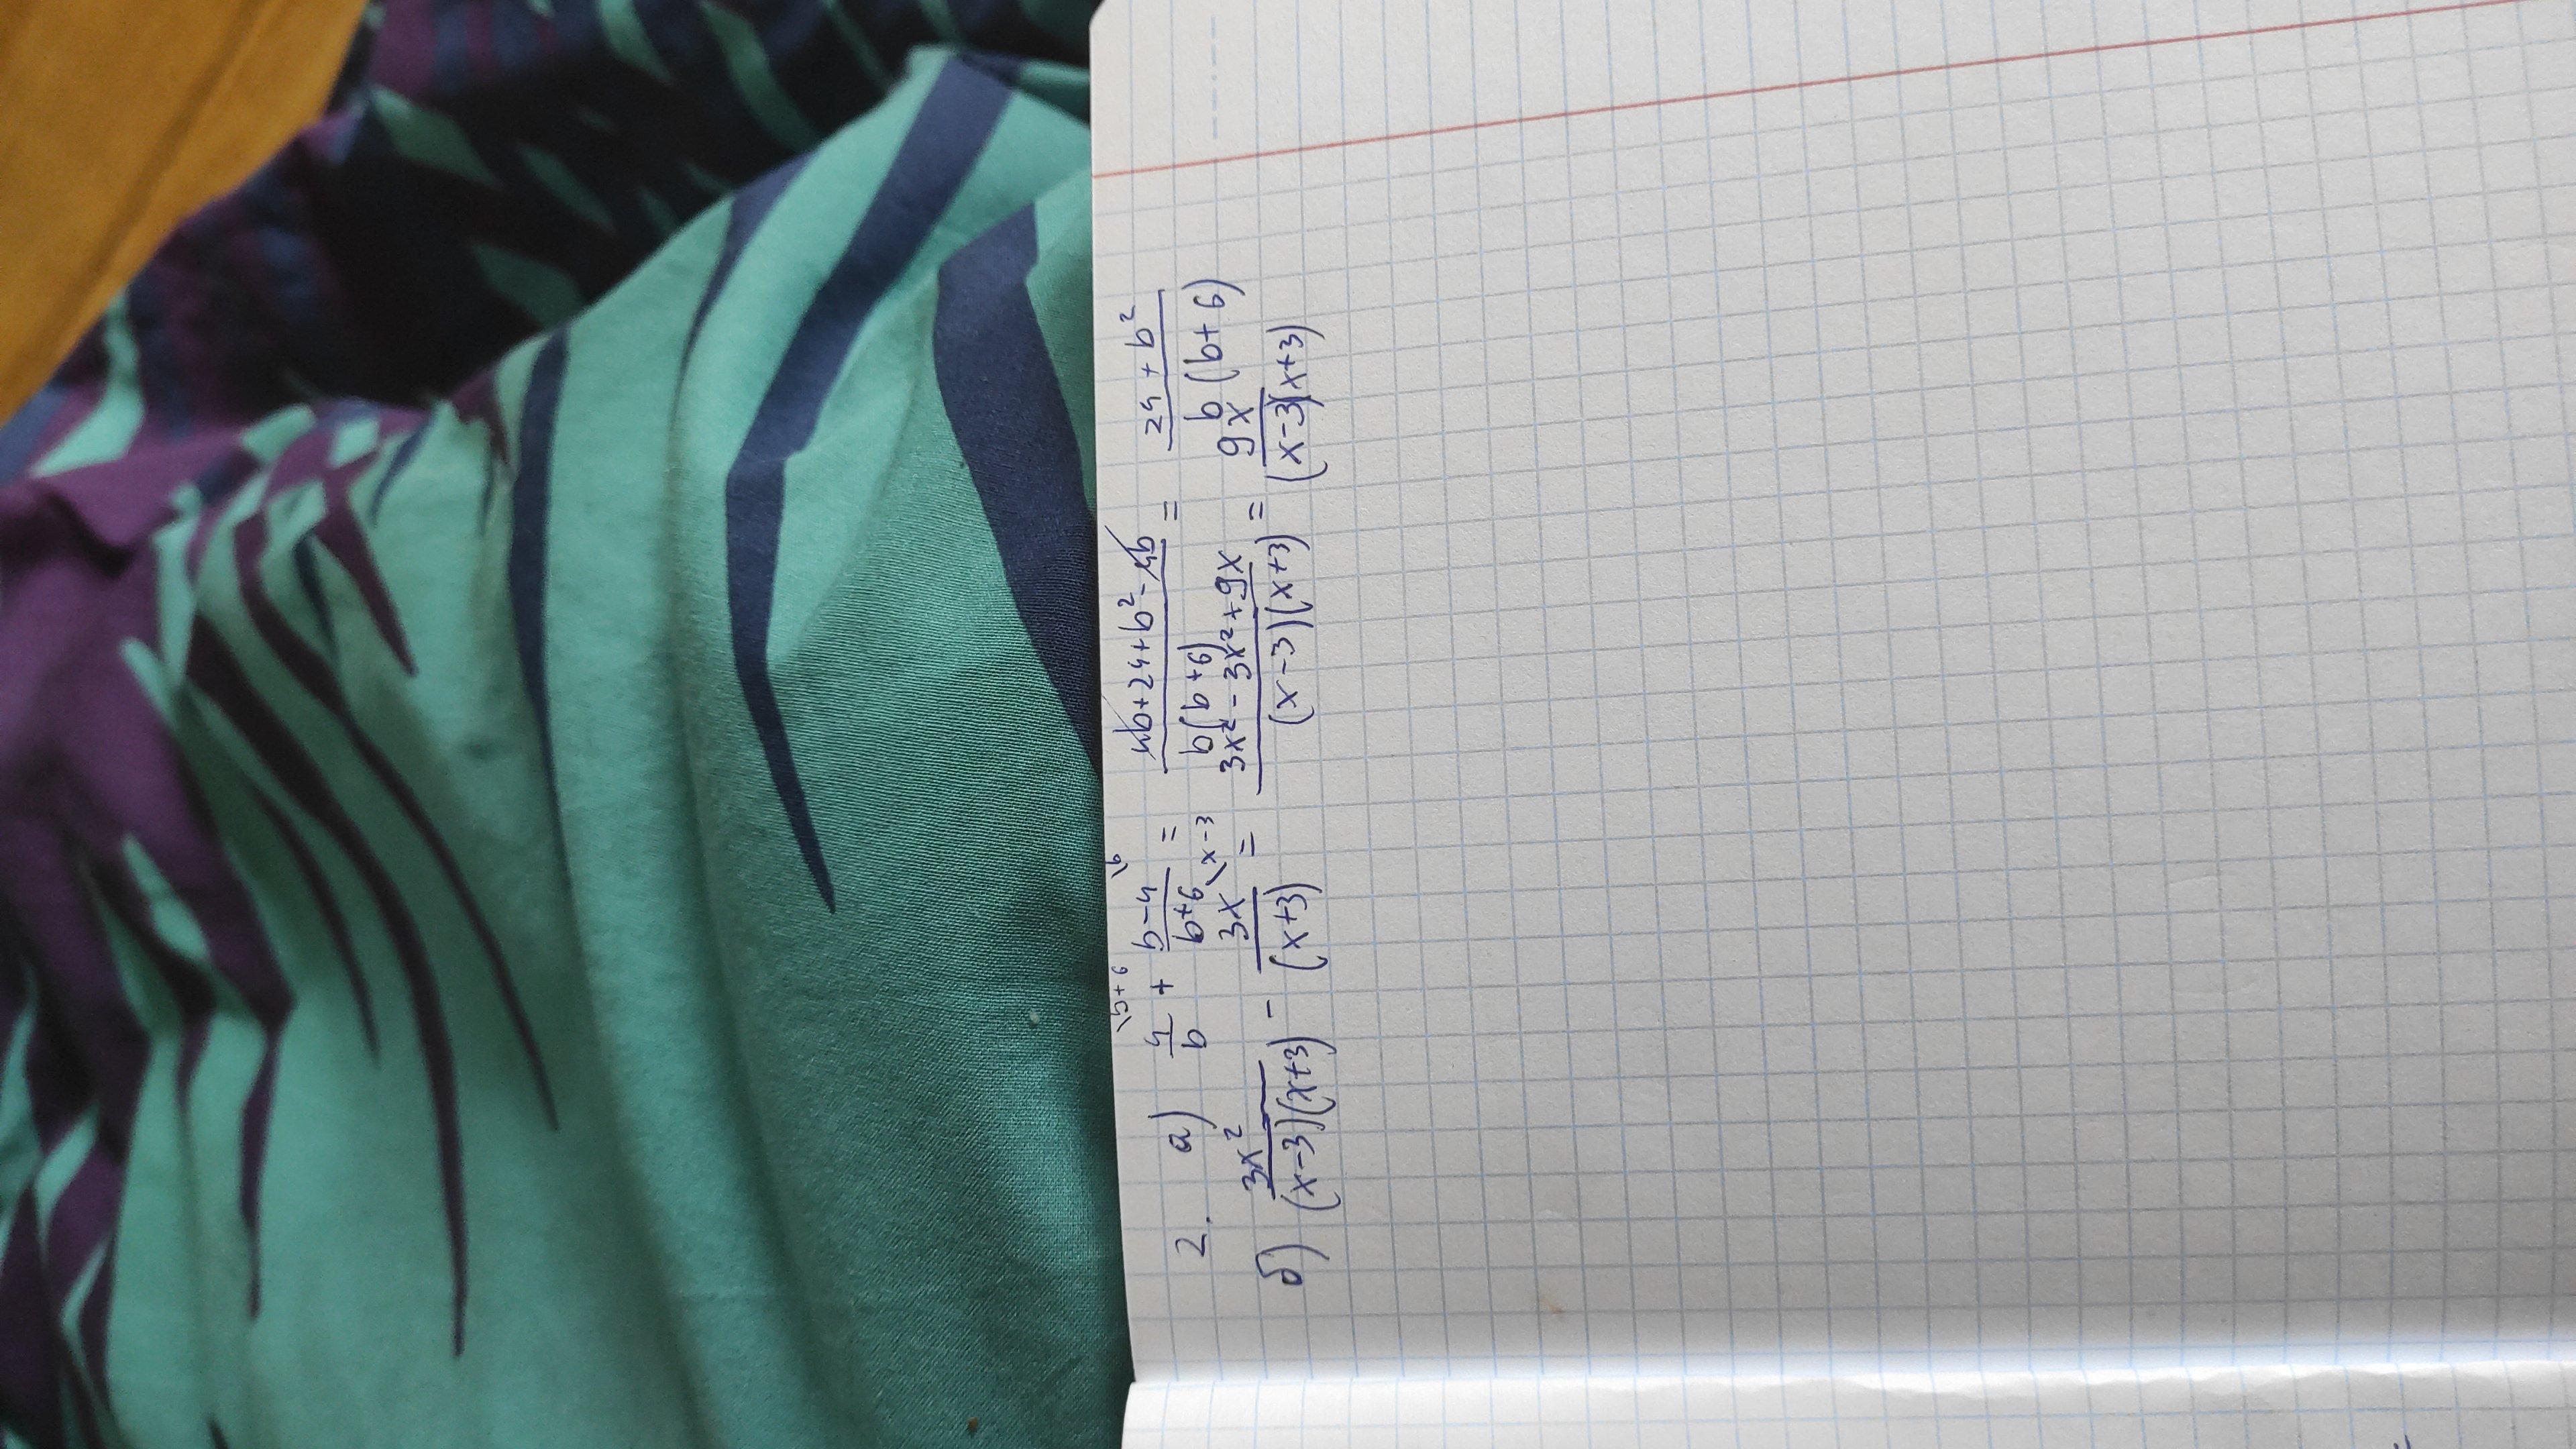 2. а) 4/b \b+6 + (b-4)/(b+6) \b = (4b+24+b²-4b)/(b(b+6)) = (24+b²)/(b(b+6))
б) 3x²/((x-3)(x+3)) - 3x/(x+3) \x-3 = (3x²-3x²+9x)/((x-3)(x+3)) = 9x/((x-3)(x+3))